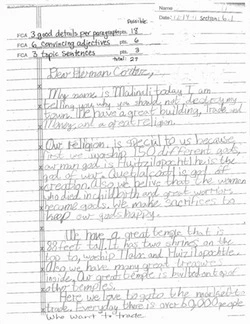 Name
Possible
Date: 12.19.11 section 6.1
FCA 3 good details per paragraph pts. 18
FCA 6 convincing adjectives pts. 6
FCA 3 Topic Sentences pts. 3
Total: 27
Dear Hernan Cortez,
My name is Malinali today I am
telling you why you should not destroy my
town. We have a great building, trade and
Money, and an great religion.
Our religion is special to us because
first we worship 150 different gods,
our main god is Huitzilopochtli he is the
god of war. Quetzalcoatl is god of
creation. Also we belive that the women
who died in chilbirth and great warriors
become gods. We make sacrifices to
keep our gods happy.
We have a great temple that is
88 feet tall. It has two shrines on the
top to worship Tlaloc and Huitzilopochtli.
Also we have many great treasures
inside. Our great temple is build on top of
other temples.
Here we love to go to the market to
trade. Everyday there is over 60,000 people
who want to trade